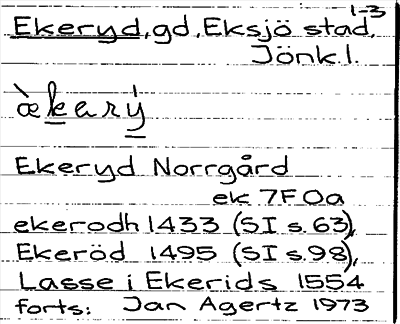 1-3
Ekeryd, gd, Eksjö stad,
Jönk.l.
æ̀karý
Ekeryd Norrgård
ek 7F 0a
ekerodh 1433 (SI s. 63),
Ekeröd 1495 (SI s. 98),
Lasse i Ekerids 1554
forts: Jan Agertz 1973